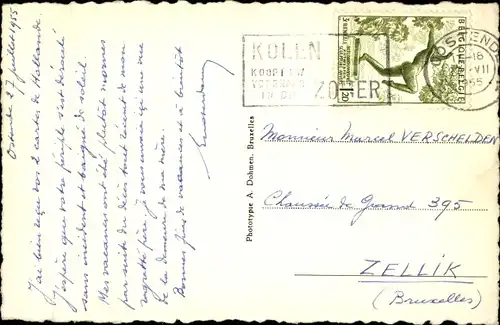 Ostende 27 juillet 1955
J'ai bien reçu vos 2 cartes de Hollande
J'espère que votre périple s'est déroulé
sans incident et baigné de soleil.
Mes vacances ont été plutôt mornes
par suite du décès tout récent de mon
regretté père, je vous envoie ici une vue
de la demeure de ma mère.
Bonnes fins de vacances et à bientôt
KOLEN
KOOP UW
ZOMER
OOSTENDE
-18
VII
1955
BELGIQUE-BELGIË
1,20
Phototypie A. Dohmen, Bruxelles
Monsieur Marcel VERSCHELDEN
Chaussée de Grand 395
ZELLIK
(Bruxelles)